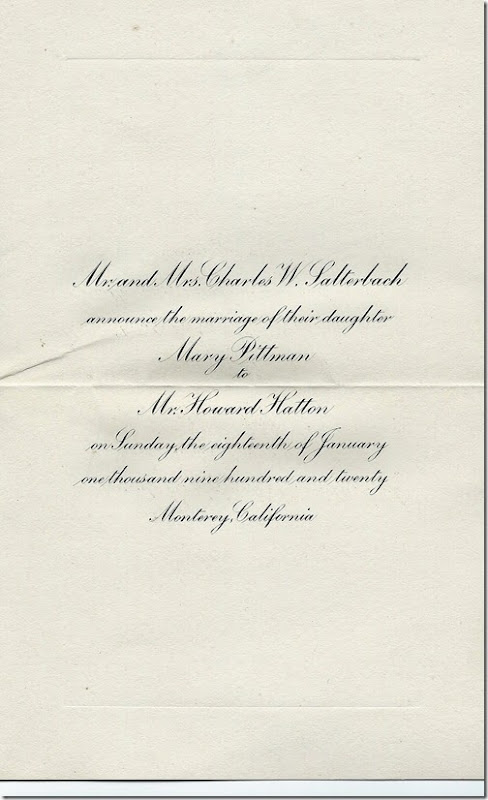 Mr. and Mrs. Charles W. Salterbach
announce the marriage of their daughter
Mary Pittman
to
Mr. Howard Hatton
on Sunday, the eighteenth of January
one thousand nine hundred and twenty
Monterey, California